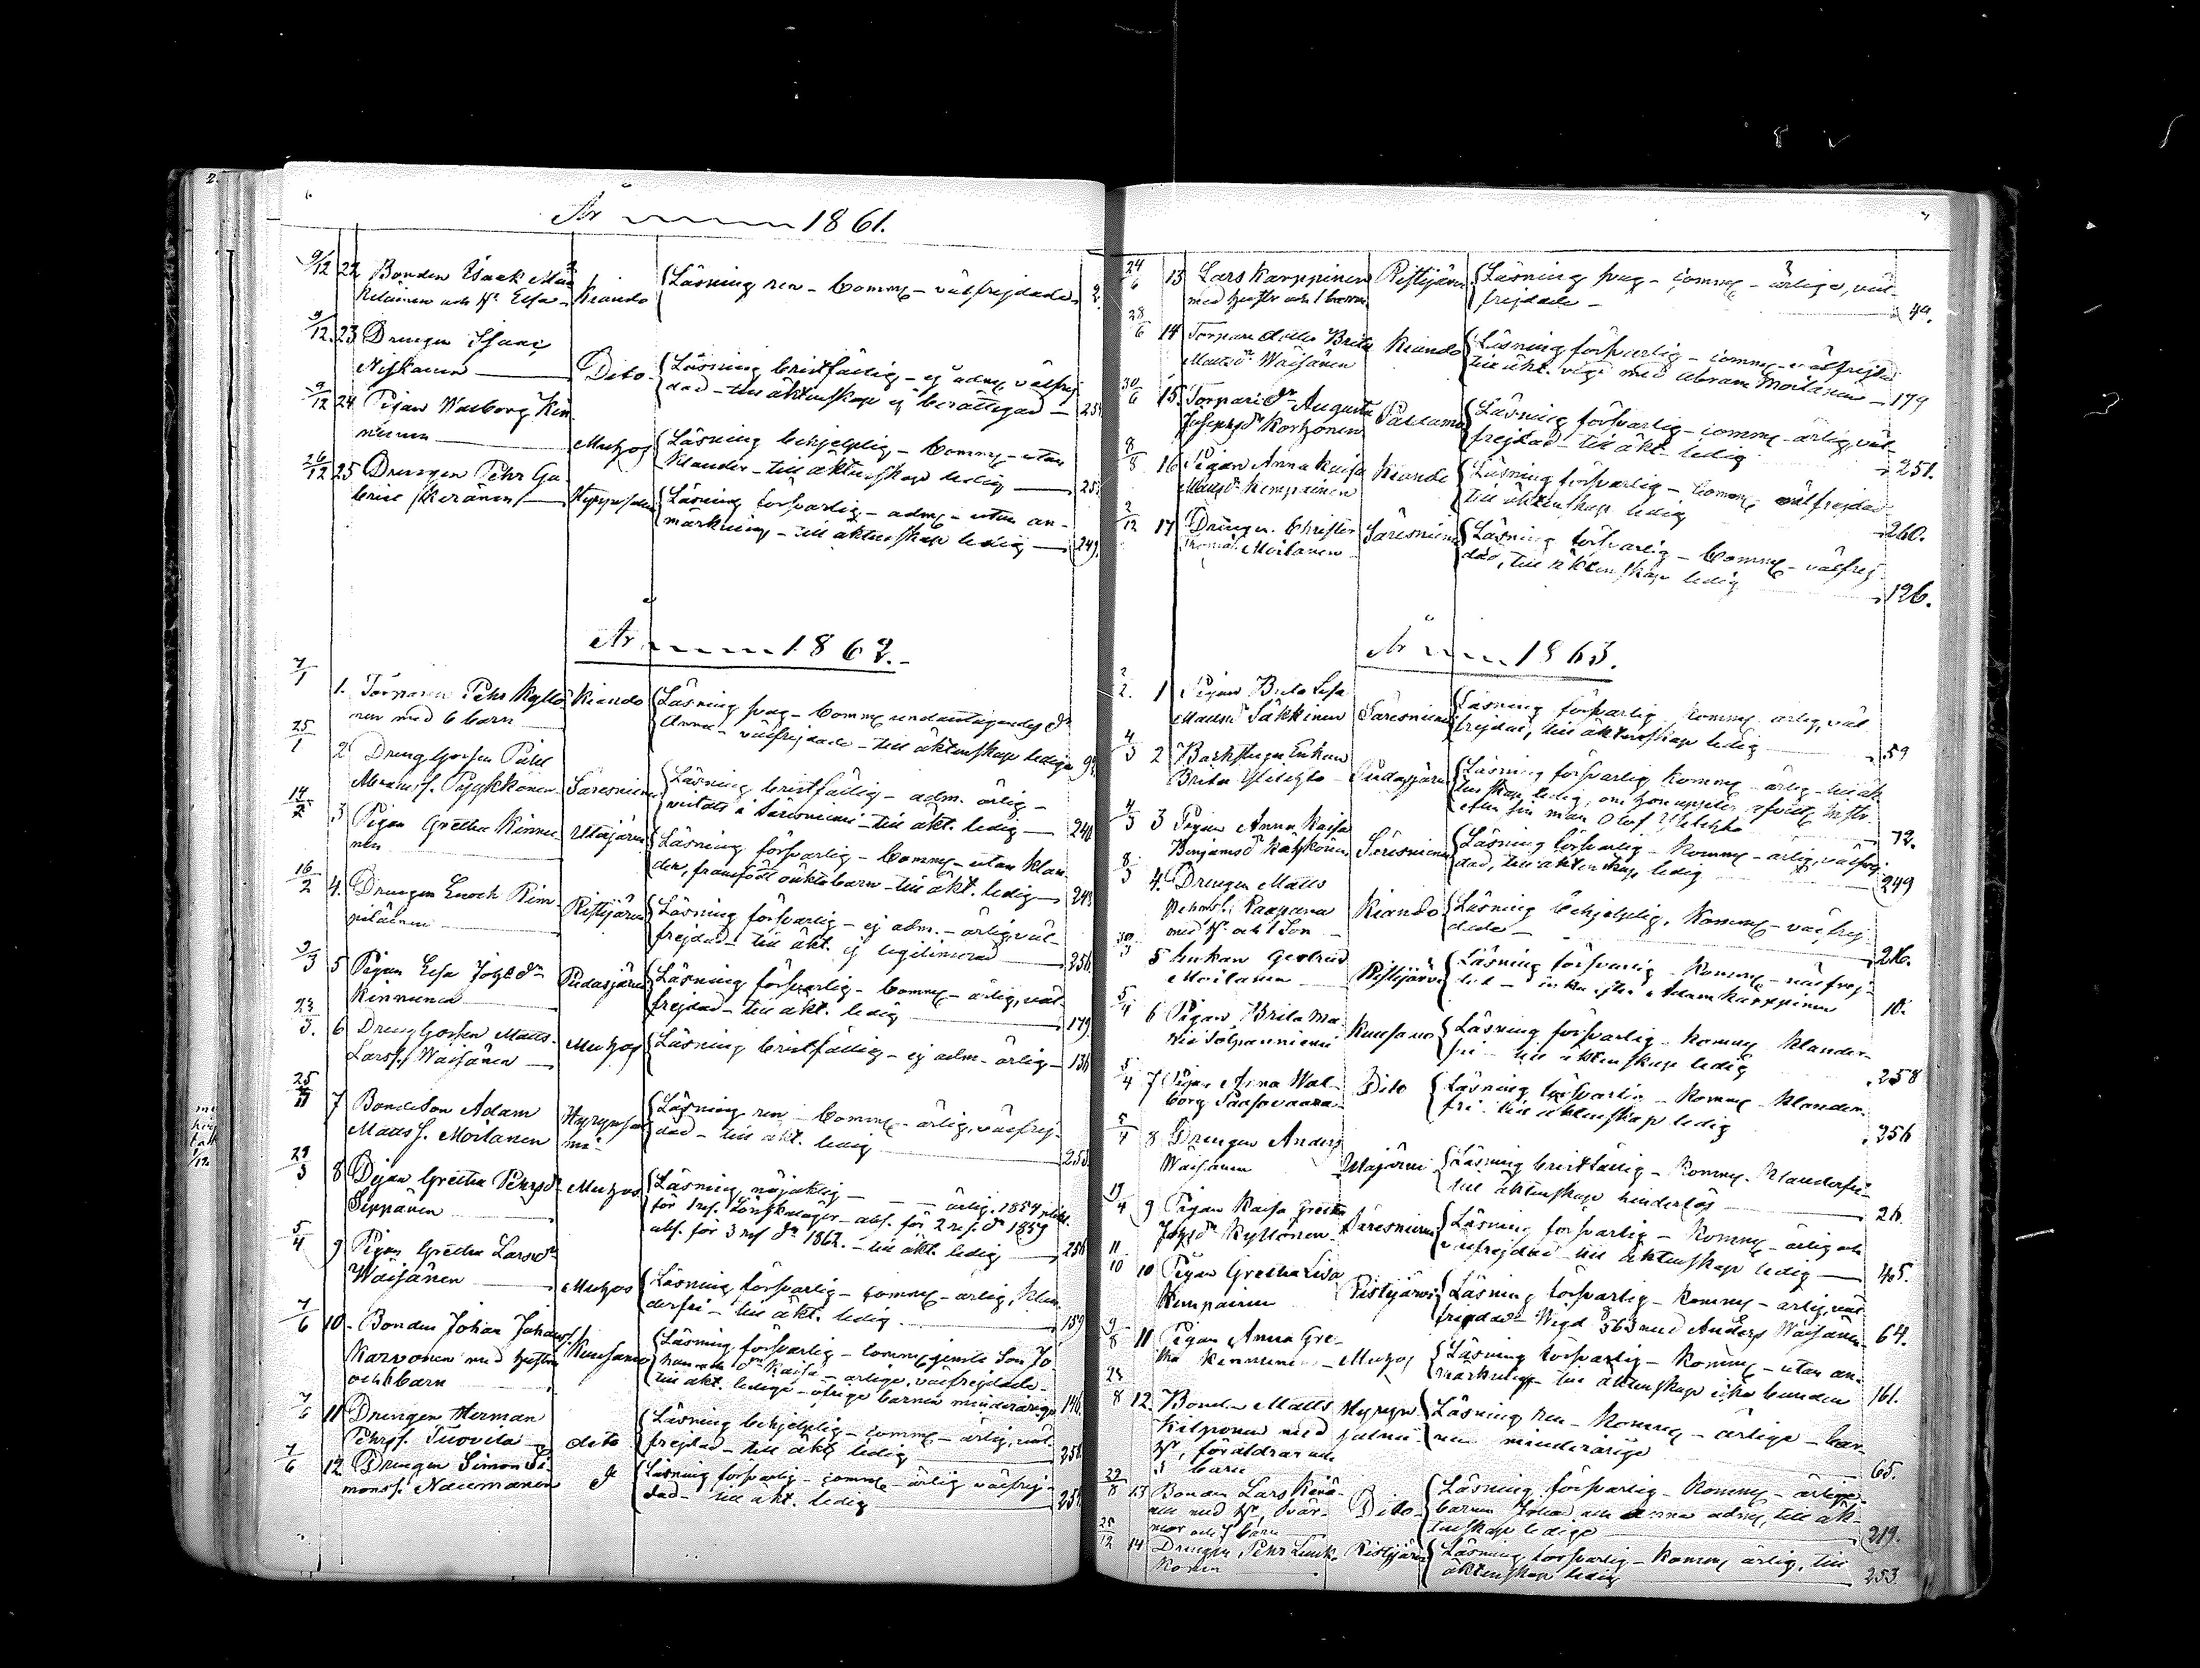 År 1861.
9/12 22 Bonden Isaak Mä
kelainen och H. Elsa Kiando Läsning ren - Comm - välfrejdade 2
9/12 23 Drengen Isaac
Niskanen Dito Läsning bristfällig - ej adm välfrej
dad - till äktenskap ej berättigad 25
9/12 24 Pigan Walborg Kin
nunen Muhos Läsning behjelplig - Comm - utan
klander - till äktenskap ledig 25
26/12 25 Drengen Pehr Ga
briel Keränen Läsning försvarlig - adm - utan an-
märkning - till äktenskap ledig 249
År 1862.
7/1 1. Torparen Pehr Kyllö
nen med 6 barn Kiando Läsning svag - Comm undantagandes dr
Anna - välfrejdade - till äktenskap lediga 9
25/1 2 Dreng Gossen Påhl
Abramss. Pyykkönen Säresniemi Läsning bristfällig - adm. ärlig -
i Säresniemi - till äkt. ledig 240
14/2 3 Pigan Gretha Kinnu
nen Utajärvi Läsning försvarlig - Comm - utan klan
der, framfödt oäkta barn - till äkt. ledig 243
16/2 4. Drengen Enoch Kem
piläinen Ristijärvi Läsning försvarlig - ej adm. - ärlig, väl-
frejdad - till äkt. ej legitimerad 256
3/3 5 Pigan Elsa Johsdr
Kinnunen Pudasjärvi Läsning försvarlig - Comm - ärlig, väl-
frejdad - till äkt. ledig 179
23/3. 6 Dreng Gossen Matts
Larss. Waisänen Muhos Läsning bristfällig - ej adm - ärlig - 136
25 7 Bondeson Adam
Matts S. Moilanen Hyrynsal
mi Läsning ren - Comm - ärlig, välfrej-
dad - till äkt. ledig 255
29/3 8 Pigan Gretha Pehrsdr
Seppänen Muhos Läsning nöjaktig - ärlig. 1854
för 1 res. Lönskaläger - abs. för 2 res. dr 1859
abs. för 3 res dr 1862. - till äkt. ledig 256
5/4 9 Pigan Gretha Larsdr
Waisänen Muhos Läsning försvarlig - comm - ärlig, klan
derfri - till äkt. ledig 189
7/6 10. Bonden Johan Johanss.
Karvonen med hustru
och 6 barn Kuusamo Läsning försvarlig - comm jemte son Jo
han och dr Kaisa - ärlige, välfrejdade -
till äkt. lediga - öfrige barnen minderårige 146
7/6 11 Drengen Herman
Pehrss. Tuovila dito Läsning behjelplig - comm - ärlig, väl
frejdad - till äkt ledig 258
7/6 12 Drengen Simon Si
monss. Naumanen Läsning försvarlig - comm - ärlig välfrej-
dad - till äkt. ledig 25
24/6 13 Lars Karppinen
med hustru och 1 barn Ristijärvi Läsning svag - comm - ärlige, väl-
frejdade - 49.
28/6 14 Torpare dotter Brita
Mattsdr Waisänen Kiando Läsning försvarlig - comm - välfrejdad
till äkt. vigd med Abram Moilanen 179
30/6 15. Torparedr Augusta
Josephsdr Korhonen Paldamo Läsning försvarlig - comm - ärlig, väl-
frejdad - till äkt ledig 251.
8/8 16 Pigan Anna Kaisa
Mattsdr Kempainen Kiando Läsning försvarlig - Comm välfrejdad
till äktenskap ledig 260.
2/12 17 Drengen Christer
Thomas Moilanen Säresniemi Läsning försvarlig - Comm - välfrej-
dad, till äktenskap ledig 126.
År 1863.
2/2. 1 Pigan Brita Lisa
Mattsdr Säkkinen Säresniemi Läsning försvarlig Komm ärlig, väl
frejdad, till äktenskap ledig 59
4/3 2 Enkan
Brita Pudasjärvi Läsning försvarlig Komm - ärlig - till äk
tenskap ledig, om hon uppter
efter sin man Olof 72.
4/3 3 Pigan Anna Kaisa
Benjamsdr Säresniemi Läsning försvarlig - Komm - ärlig, välfrej
dad, till äktenskap ledig 249
8/3 4. Drengen Matts
Paapana
med H. och 1 Son Kiando Läsning behjelplig, Komm - välfrej
dade - 26.
30/3 5 Enkan Gertrud
Moilanen Ristijärvi Läsning försvarlig - Komm - välfrej-
dad - enka efter Adam Karppinen 10.
5/4 6 Pigan Brita Ma-
ria Kuusamo Läsning försvarlig - Komm klander-
fri - till äktenskap ledig 258
5/4 7 Pigan Anna Wal-
borg Saasovaara Dito Läsning försvarlig - Komm - klander
fri - till äktenskap ledig 256
5/4 8 Drengen Anders
Waisänen Utajärvi Läsning bristfällig - Komm - klanderfri -
till äktenskap hinderlös 26.
13/4 9 Pigan Kaisa Greta
Johsdr Kyllönen Säresniemi Läsning försvarlig - Komm - ärlig och
välfrejdad - till äktenskap ledig 405.
11/10 10 Pigan Gretha Lisa
Kempainen Ristijärvi Läsning försvarlig - Komm - ärlig, väl
frejdad - Vigd med Anders Waisänen 64.
9/8 11 Pigan Anna Gre-
tha Kinnunen Muhos Läsning försvarlig - Komm - utan an-
märkning - till äktenskap icke bunden 161.
23/8 12. Bonden Matts
Kilponen med
H., föräldrar och
5 barn Hyryn
salmi Läsning ren - Komm - ärlige - bar-
nen minderårige 65.
29/8 13 Bonden Lars Kerä-
nen med H., svär-
mor och 5 barn Dito Läsning försvarlig - Komm - ärlige
barnen Johan och Anna adm, till äk-
tenskap lediga 219.
25/12 14 Drengen Pehr Link-
konen Ristijärvi Läsning försvarlig - Komm ärlig, till
äktenskap ledig 253